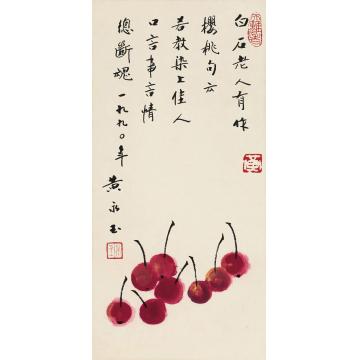 白石老人有咏
櫻桃句云
若教染上佳人
口言事言情
總斷魂一九九〇年
黄永玉